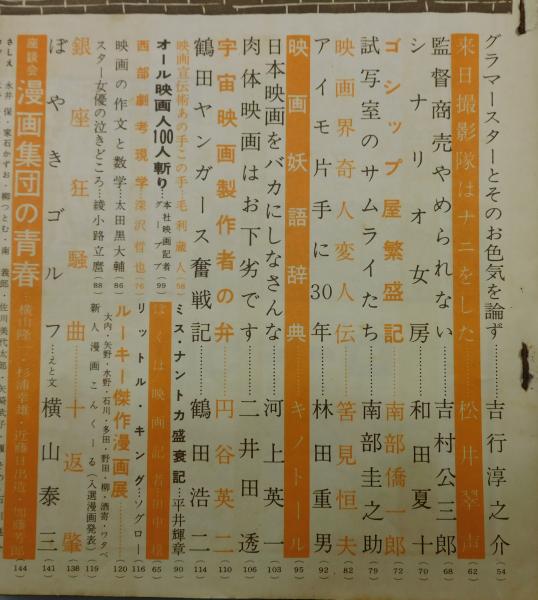 グラマースターとそのお色気を論ず……吉行淳之介(54)
来日撮影隊はナニをした……松井翠声(62)
監督商売やめられない……吉村公三郎(68)
シナリオ女房……和田夏十(70)
ゴシップ屋繁盛記……南部僑一郎(72)
試写室のサムライたち……南部圭之助(79)
映画界奇人変人伝……筈見恒夫(82)
アイモ片手に30年……林田重男(92)
映画妖語辞典……キノトール(95)
日本映画をバカにしなさんな……河上英一(103)
肉体映画はお下劣です……二井田透(106)
宇宙映画製作者の弁……円谷英二(110)
鶴田ヤンガース奮戦記……鶴田浩二(114)
映画宣伝術あの手この手…毛利蔵人(58)
オール映画人100人斬り…本社映画記者グループ(99)
西部劇考現学…深沢哲也(76)
映画の作文と数学…太田黒大輔(86)
スター女優の泣きどころ…綾小路立麿(88)
ミス・ナントカ盛衰記…平井輝章(90)
ぼくは映画記者…田中(65)
リットル・キング…ソグロー(116)
ルーキー傑作漫画展……(120)
大内・矢野・水野・石川・多田・野田・柳・酒寄・ワタベ
新人漫画こんくーる(入選漫画発表)(119)
銀座狂騒曲…十返肇(138)
ぼやきゴルフ…えと文 横山泰三(141)
座談会 漫画集団の青春…横山隆一・杉浦幸雄・近藤日出造・加藤芳郎(144)
さしえ 永井保・家石かずお・柳つとむ・南義郎・佐川美代太郎・矢崎